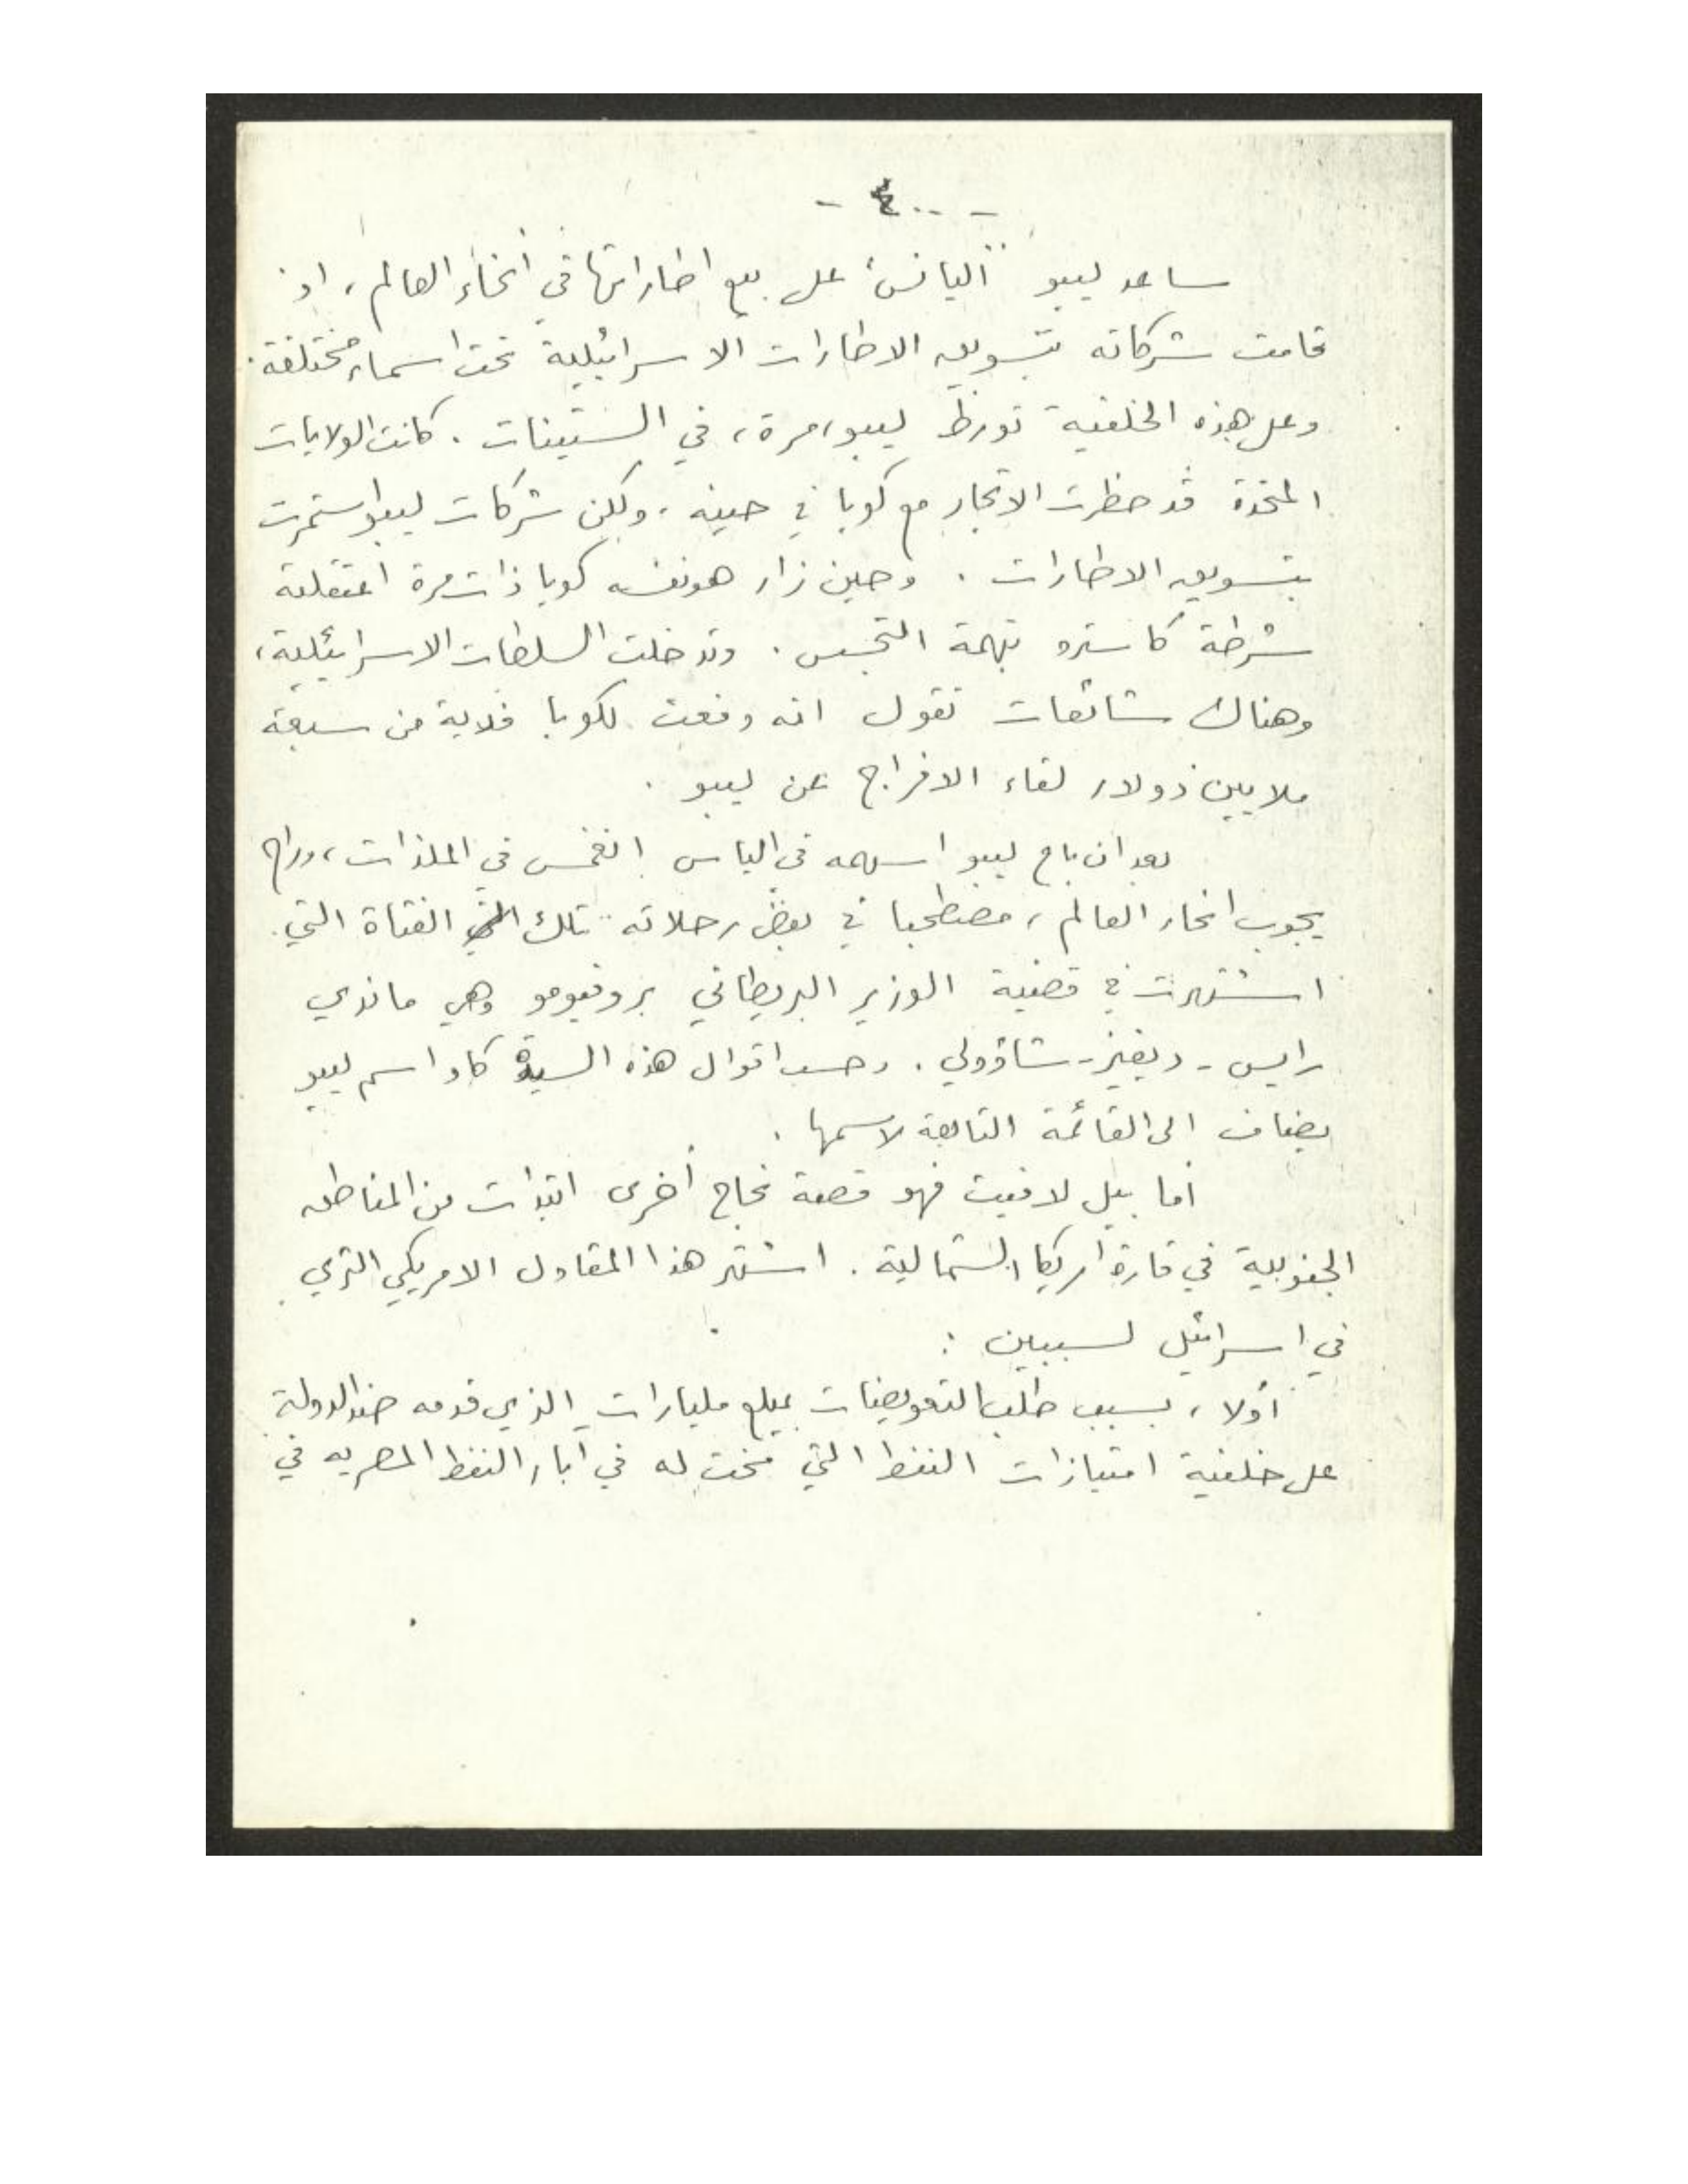 - ٤٠٠ -
ساعد ليبو "أليانس" على بيع اطاراتها في أنحاء العالم، اذ
قامت شركاته بتسويق الاطارات الاسرائيلية تحت اسماء مختلفة.
وعلى هذه الخلفية تورط ليبو، مرة، في الستينات. كانت الولايات
المتحدة قد حظرت الاتجار مع كوبا في حينه، ولكن شركات ليبو استمرت
بتسويق الاطارات. وحين زار هو نفسه كوبا ذات مرة اعتقلته
شرطة كاسترو بتهمة التجسس. وتدخلت السلطات الاسرائيلية،
وهناك شائعات تقول انه دفعت لكوبا فدية من سبعة
ملايين دولار لقاء الافراج عن ليبو.
بعد ان باع ليبو اسهمه في اليانس انغمس في الملذات، وراح
يجوب انحاء العالم، مصطحبا في بعض رحلاته تلك الفتاة التي
اشتهرت في قضية الوزير البريطاني بروفيومو وهي ماندي
رايس - ديفيز - شاؤولي. وحسب اقوال هذه السيدة كاد اسم ليبو
يضاف الى القائمة التابعة لاسمها.
أما بيل لافيت فهو قصة نجاح أخرى ابتدات من المناطق
الجنوبية في قارة امريكا الشمالية. اشتهر هذا المقاول الامريكي الثري
في اسرائيل لسببين:
أولا، بسبب طلب التعويضات بمبلغ مليارات الذي قدمه ضد الدولة
على خلفية امتيازات النفط التي منحت له في آبار النفط المصريه في